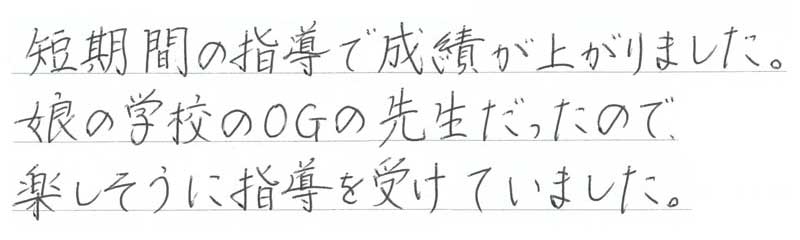 短期間の指導で成績が上がりました。
娘の学校のOGの先生だったので、
楽しそうに指導を受けていました。